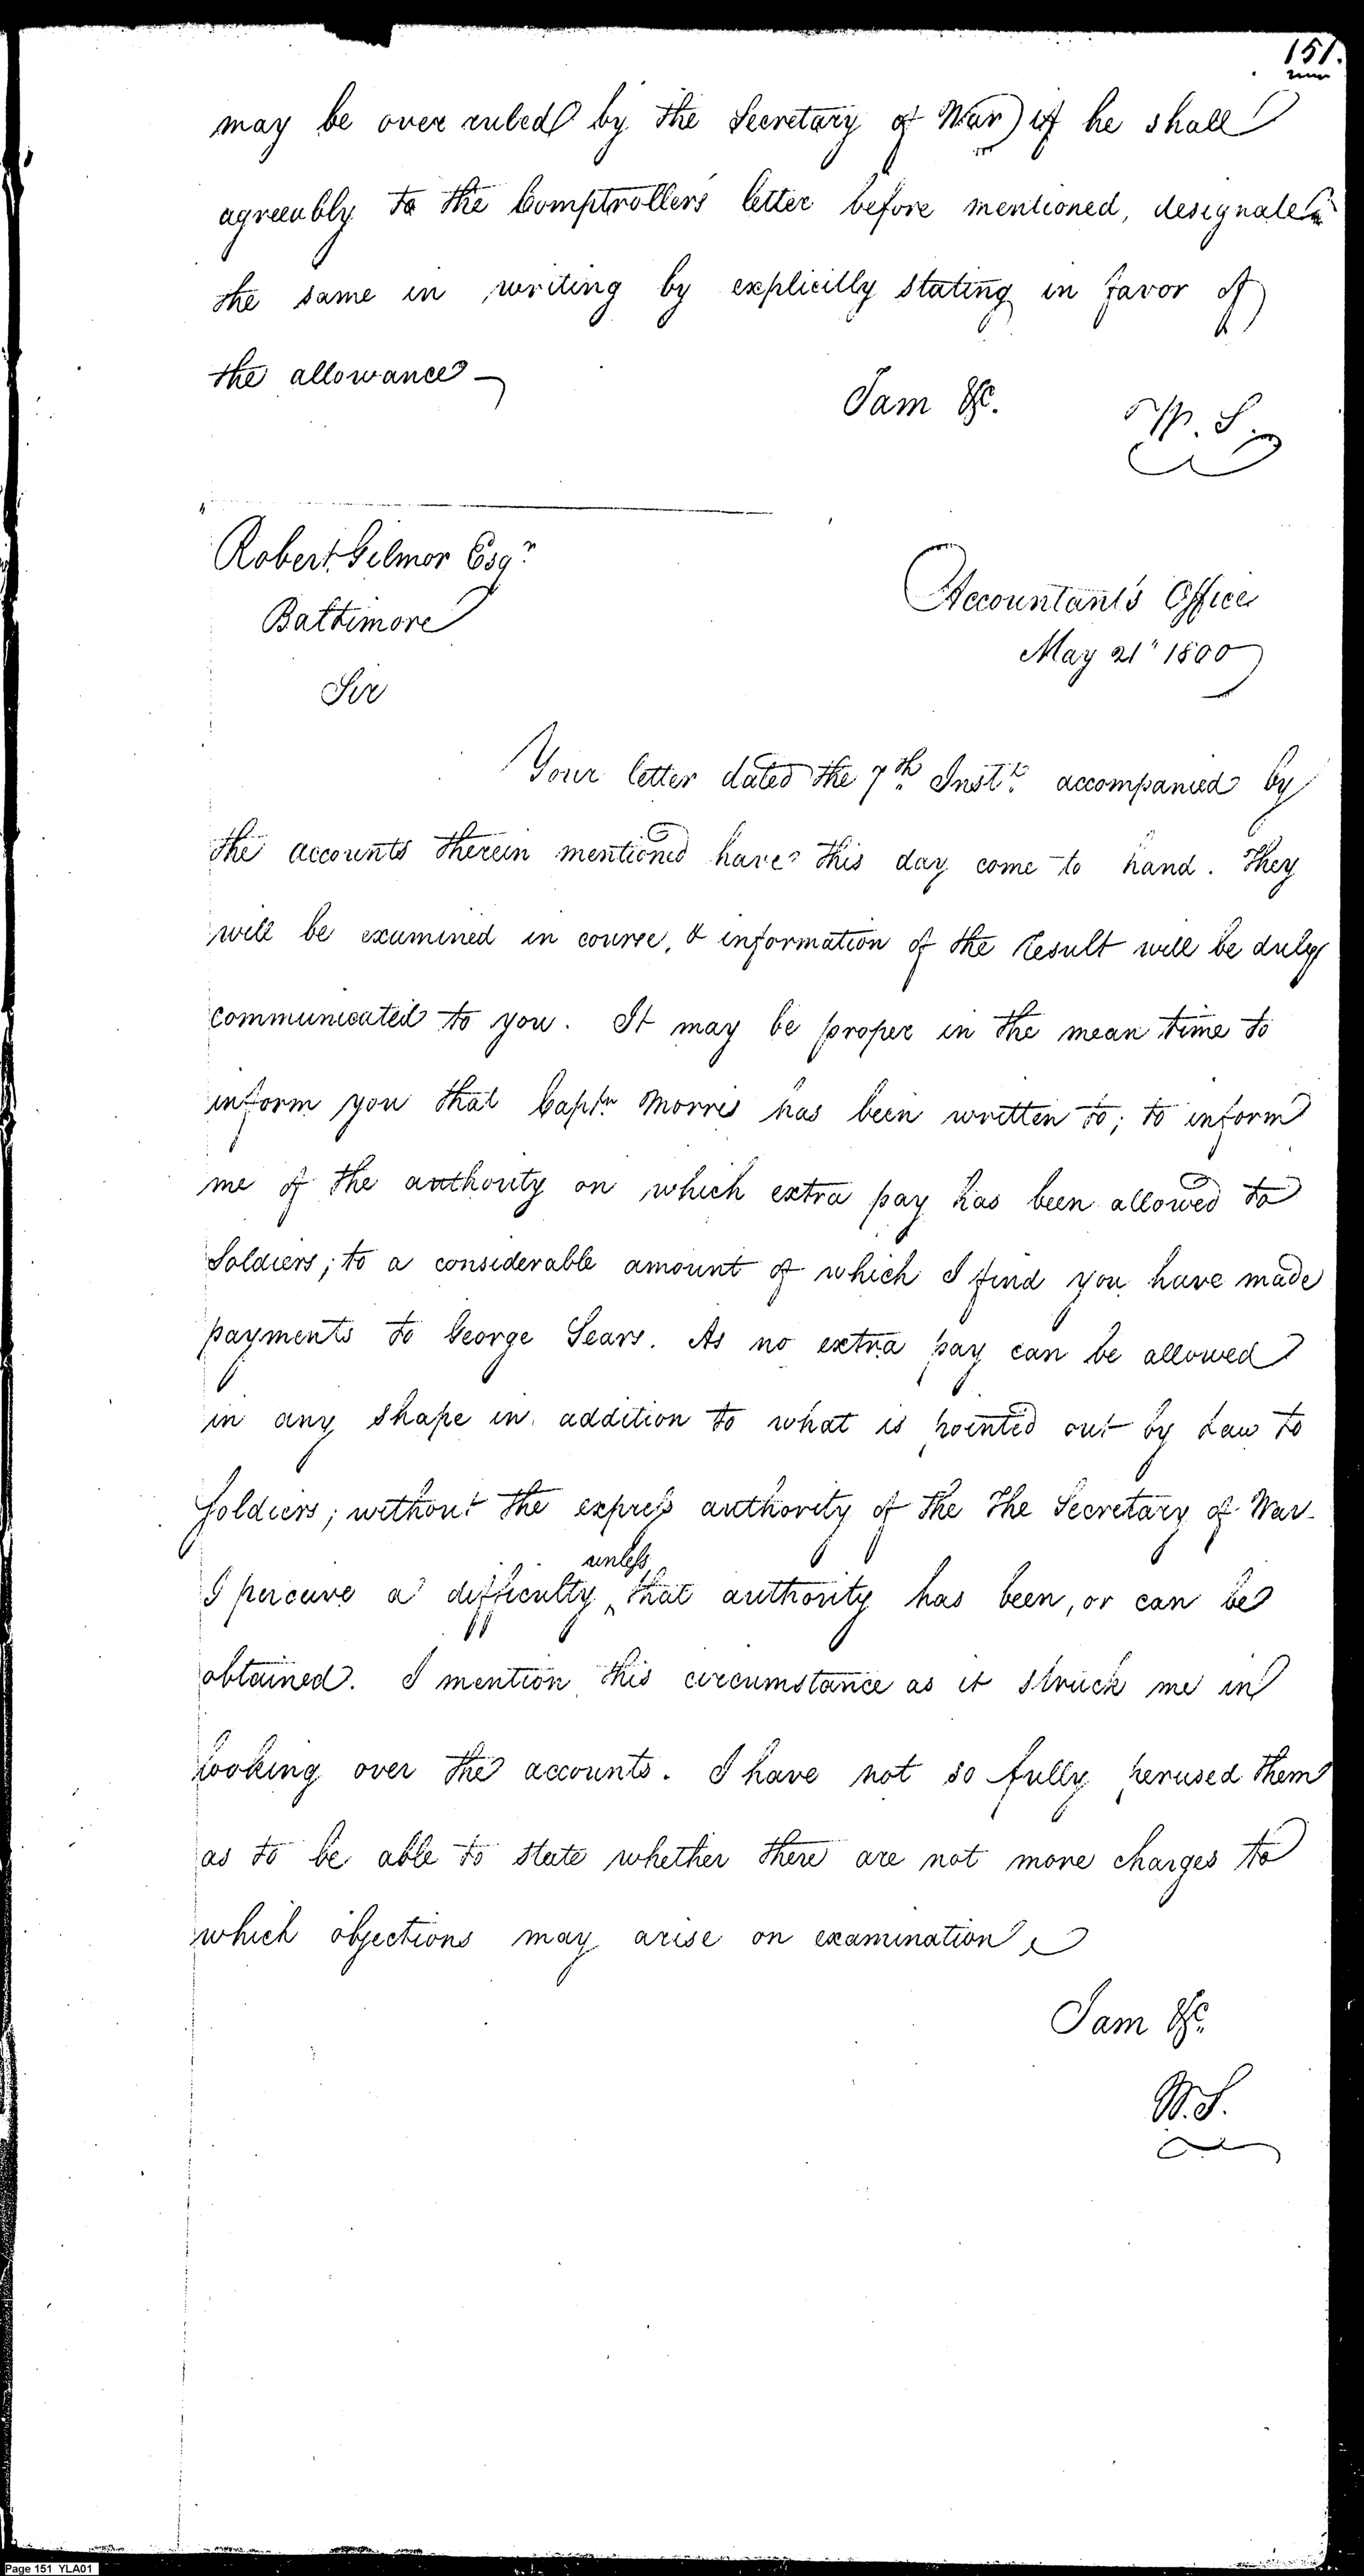 151.
may be over ruled by the Secretary of War if he shall
agreeably to the Comptroller's letter before mentioned, designate
the same in writing by explicitly stating in favor of
the allowance —
I am &c.
W. S.
Robert Gilmor Esqr.
Baltimore
Accountant's Office
May 21" 1800
Sir
Your letter dated the 7th Instt. accompanied by
the accounts therein mentioned have this day come to hand. They
will be examined in course, & information of the result will be duly
communicated to you. It may be proper in the mean time to
inform you that Captn Morris has been written to; to inform
me of the authority on which extra pay has been allowed to
Soldiers; to a considerable amount of which I find you have made
payments to George Sears. As no extra pay can be allowed
in any shape in addition to what is pointed out by Law to
Soldiers; without the express authority of the The Secretary of War.
unless
I perceive a difficulty ‸ that authority has been, or can be
obtained. I mention this circumstance as it struck me in
looking over the accounts. I have not so fully perused them
as to be able to state whether there are not more charges to
which objections may arise on examination
I am &c.
W. S.
Page 151 YLA01